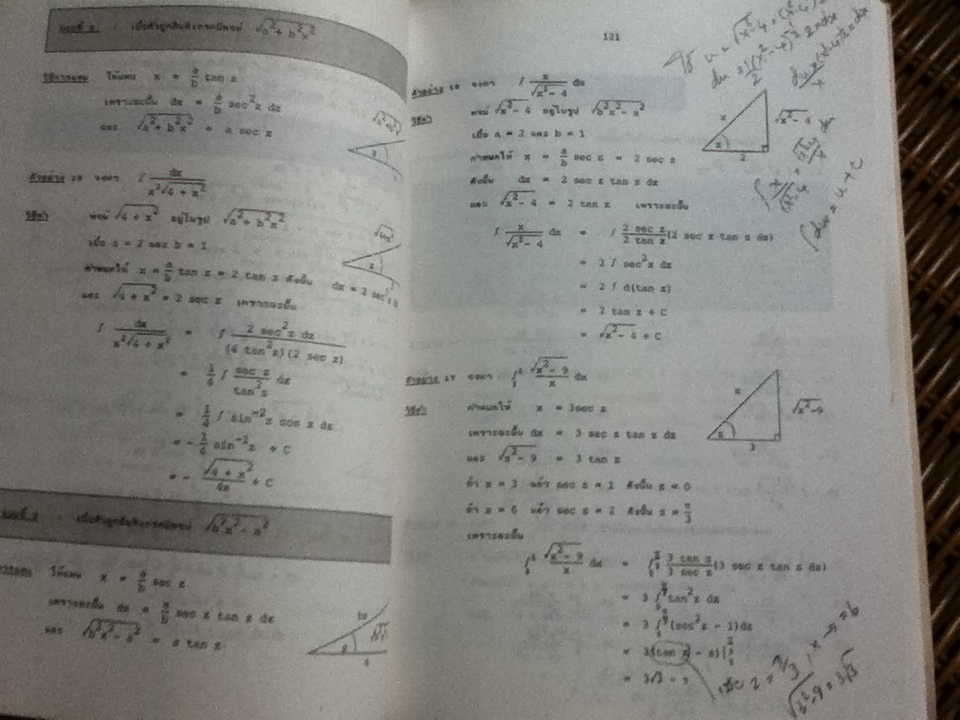 เมื่อตัวถูกอินทิเกรตมีพจน์ √(a²+ b²x²)
วิธีการแทน ให้แทน x = a/b tan z
เพราะฉะนั้น dx = a/b sec²z dz
และ √(a²+ b²x²) = a sec z
√(a²+b²x²)
x
z
ตัวอย่าง จงหา ∫ dx/(x²√(4 + x²))
วิธีทำ พจน์ √(4 + x²) อยู่ในรูป √(a²+ b²x²)
เมื่อ a = 2 และ b = 1
กำหนดให้ x = a/b tan z = 2 tan z ดังนั้น dx = 2 sec²z
และ √(4 + x²) = 2 sec z เพราะฉะนั้น
x
z
∫ dx/(x²√(4 + x²)) = ∫ 2 sec²z dz/((4 tan²z)(2 sec z))
= 1/4 ∫ sec z/tan²z dz
= 1/4 ∫ sin⁻²z cos z dz
= - 1/4 sin⁻¹z + C
= - √(4 + x²)/4x + C
เมื่อตัวถูกอินทิเกรตมีพจน์ √(b²x²- a²)
ให้แทน x = a/b sec z
เพราะฉะนั้น dx = a/b sec z tan z dz
และ √(b²x²- a²) = a tan z
bx
z
a
121
ตัวอย่าง 16 จงหา ∫ x/√(x²- 4) dx
วิธีทำ พจน์ √(x²- 4) อยู่ในรูป √(b²x²- a²)
เมื่อ a = 2 และ b = 1
กำหนดให้ x = a/b sec z = 2 sec z
ดังนั้น dx = 2 sec z tan z dz
และ √(x²- 4) = 2 tan z เพราะฉะนั้น
x
√(x²- 4)
z
2
∫ x/√(x²- 4) dx = ∫ 2 sec z/2 tan z (2 sec z tan z dz)
= 2 ∫ sec²z dz
= 2 ∫ d(tan z)
= 2 tan z + C
= √(x²- 4) + C
∫du = u + C
ตัวอย่าง 17 จงหา ∫₃⁶ √(x²- 9)/x dx
วิธีทำ กำหนดให้ x = 3sec z
เพราะฉะนั้น dx = 3 sec z tan z dz
และ √(x²- 9) = 3 tan z
ถ้า x = 3 แล้ว sec z = 1 ดังนั้น z = 0
ถ้า x = 6 แล้ว sec z = 2 ดังนั้น z = π/3
เพราะฉะนั้น
x
√(x²-9)
z
3
∫₃⁶ √(x²- 9)/x dx = ∫ 3 tan z/3 sec z (3 sec z tan z dz)
= 3 ∫ tan²z dz
= 3 ∫ (sec²z - 1)dz
= 3(tan z - z)|
= 3√3 - π
z = π/3, x → = 6
√(x²-9 = 3√3